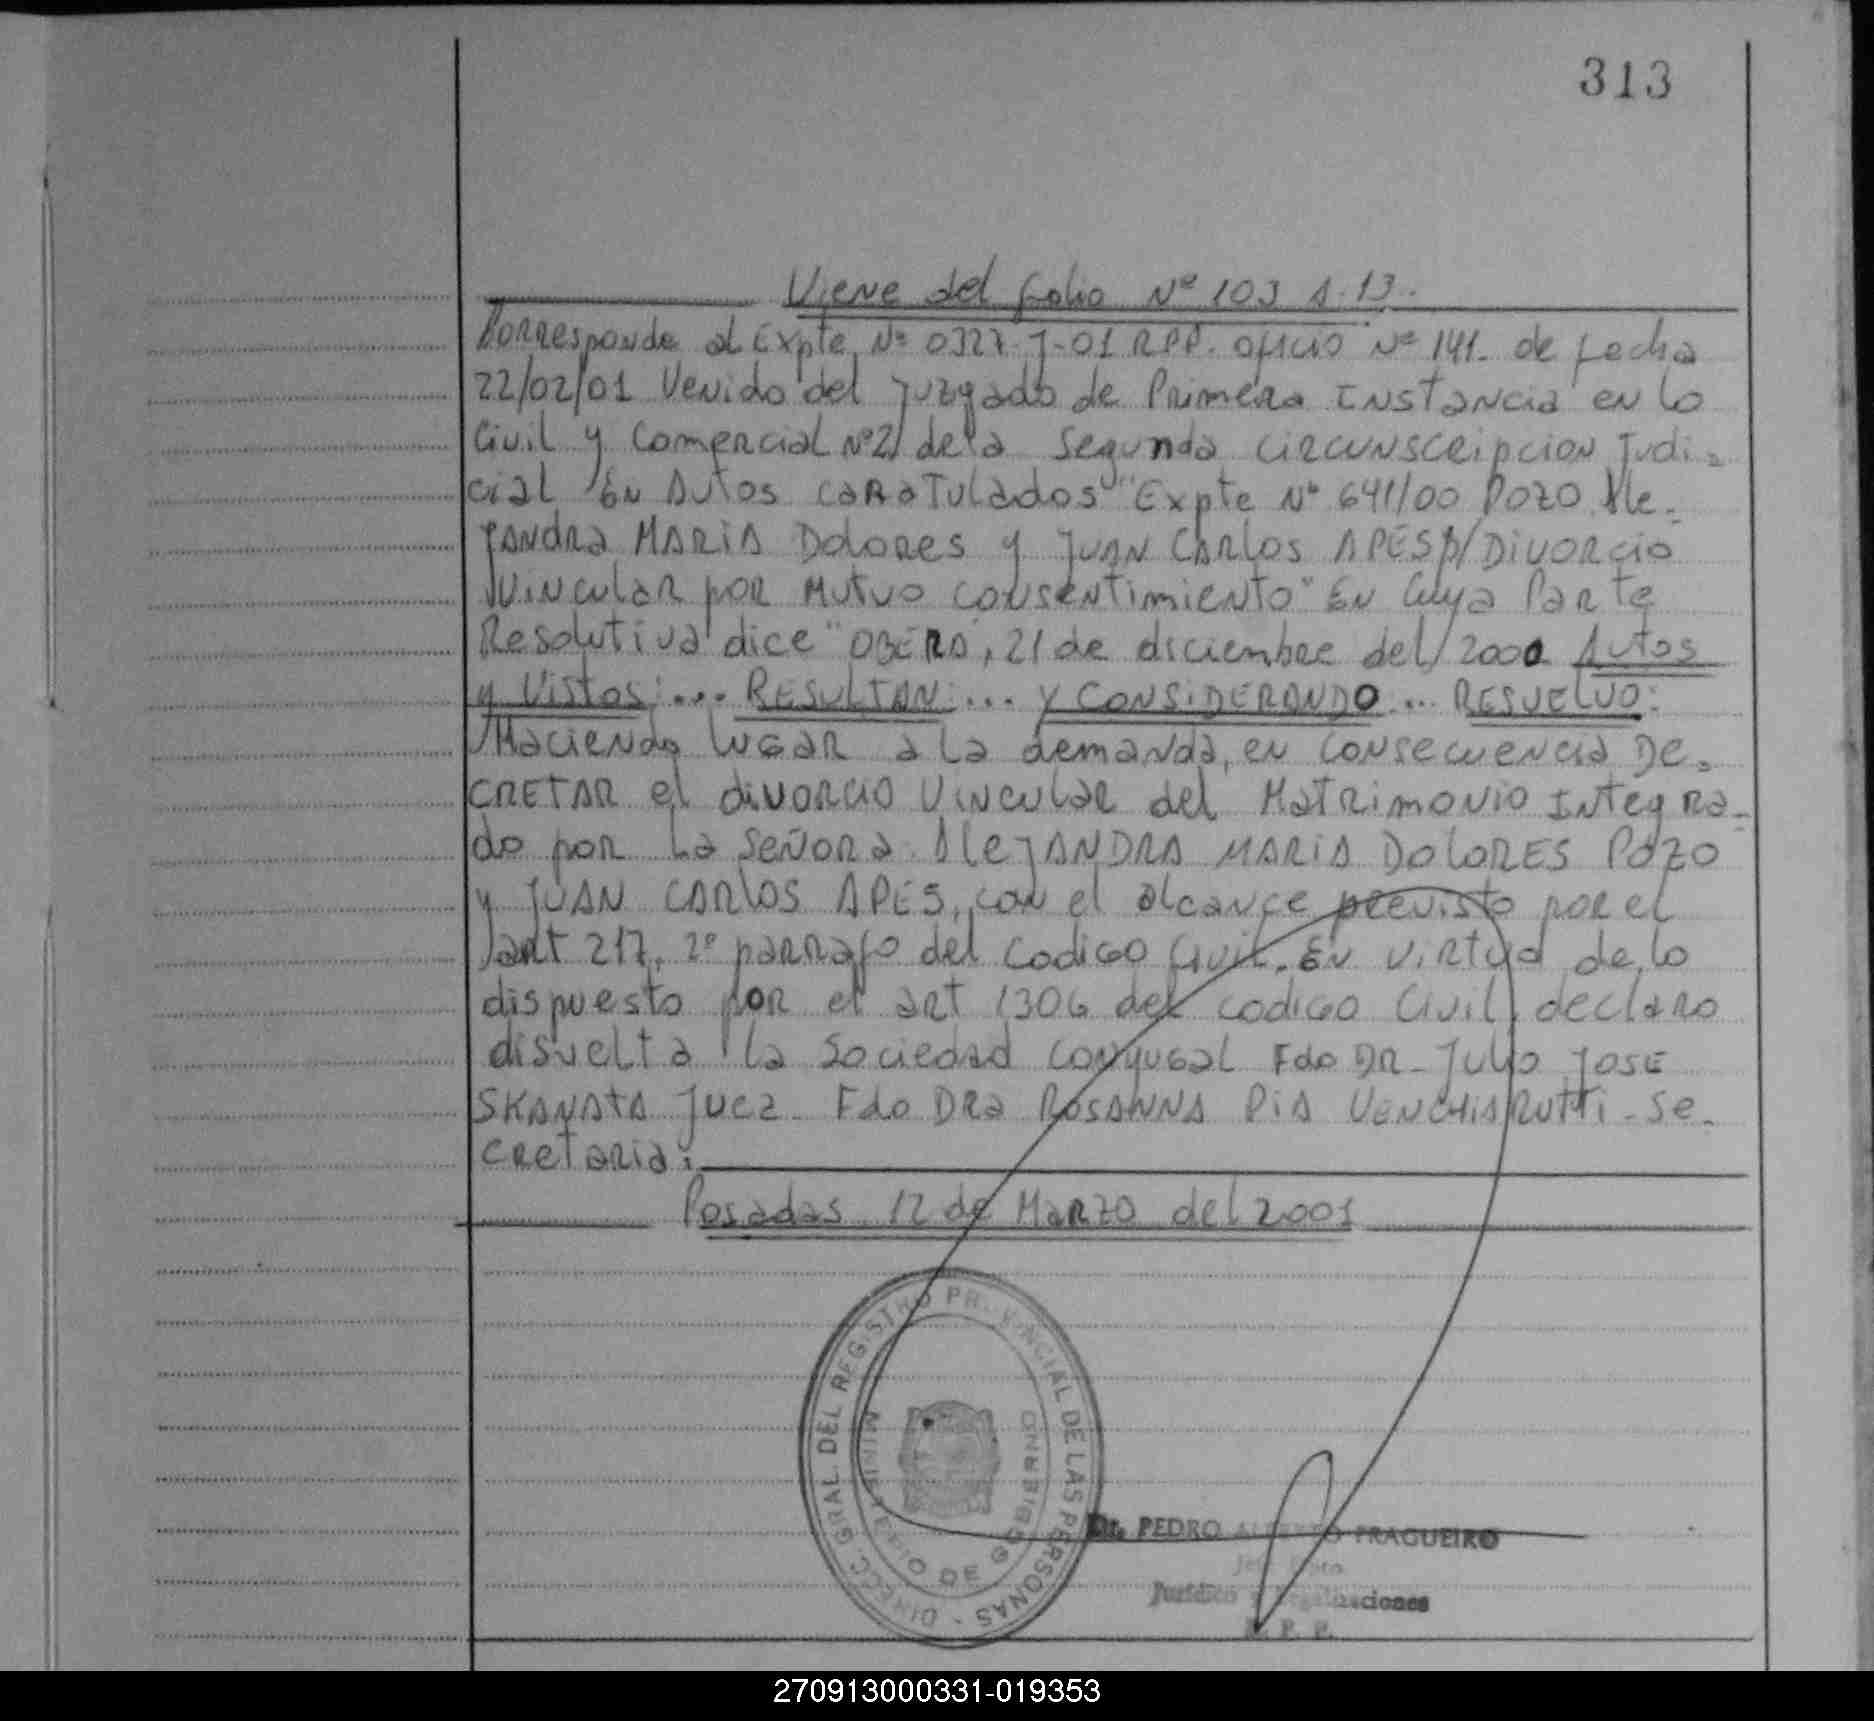 313
Viene del folio Nº 103 A.13.
Corresponde al Expte Nº 0327-J-01 RPP. oficio Nº 141. de fecha
22/02/01 Venido del Juzgado de Primera Instancia en lo
Civil y Comercial Nº2 de la Segunda Circunscripcion Judi-
cial En Autos caratulados "Expte Nº 641/00 POZO Ale-
JANDRA MARIA Dolores y JUAN CARLOS APES P/DIVORCIO
Vincular por Mutuo consentimiento" En Cuya Parte
Resolutiva dice "OBERA, 21 de diciembre del 2000 Autos
y Vistos:... RESULTAN:... Y CONSIDERANDO... RESUELVO:
Haciendo lugar a la demanda, en consecuencia DE-
CRETAR el divorcio Vincular del Matrimonio Integra-
do por La Señora AleJANDRA MARIA DOLORES POZO
y JUAN CARLOS APES, con el alcance previsto por el
art 217, 2º parrafo del Codigo Civil. En Virtud de lo
dispuesto por el art 1306 del codigo Civil, declaro
disuelta la Sociedad conyugal Fdo DR- Julio JOSE
SKANATA Juez- Fdo DRa ROSANNA PIA VENCHIARUTTI-Se-
cretaria.
Posadas 12 de Marzo del 2001
DIRECC. GRAL. DEL REGISTRO PROVINCIAL DE LAS PERSONAS -
MINISTERIO DE GOBIERNO
Dr. PEDRO ALBERTO FRAGUEIRO
Jefe Dpto.
Jurídico y Legalizaciones
R. P. P.
270913000331-019353